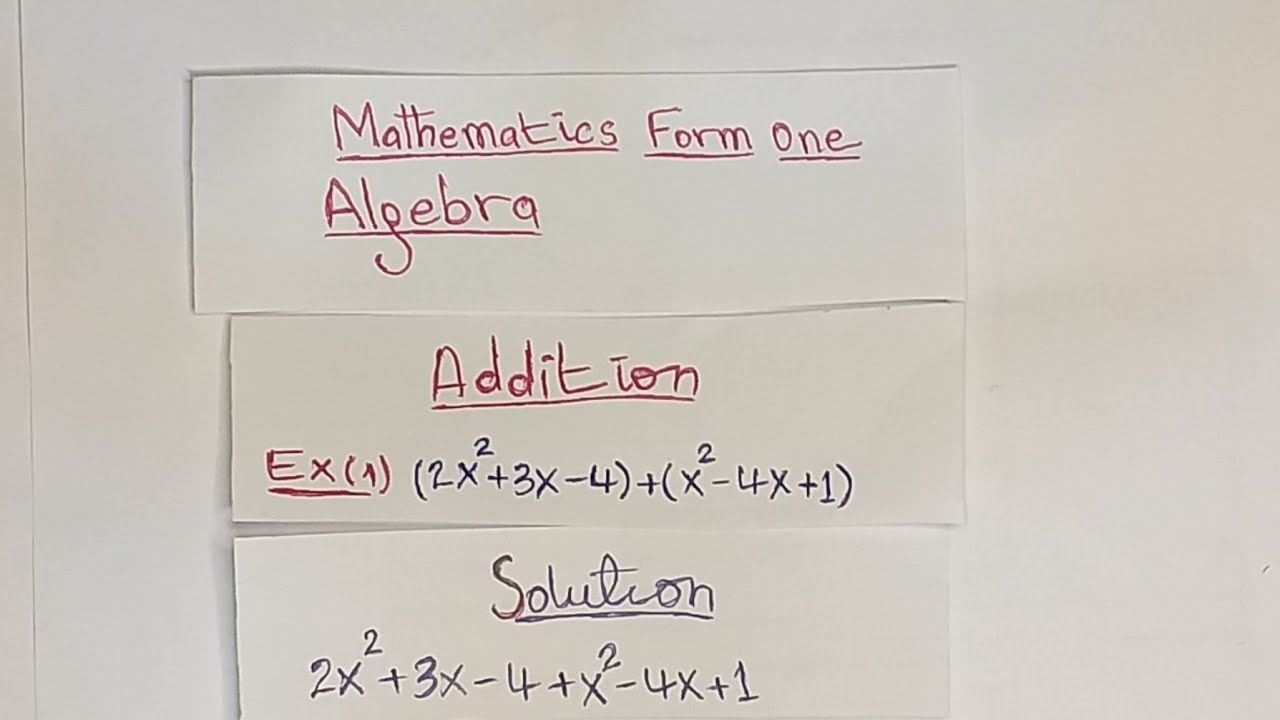 Mathematics Form one
Algebra
Addition
Ex(1) (2x²+3x-4)+(x²-4x+1)
Solution
2x²+3x-4+x²-4x+1